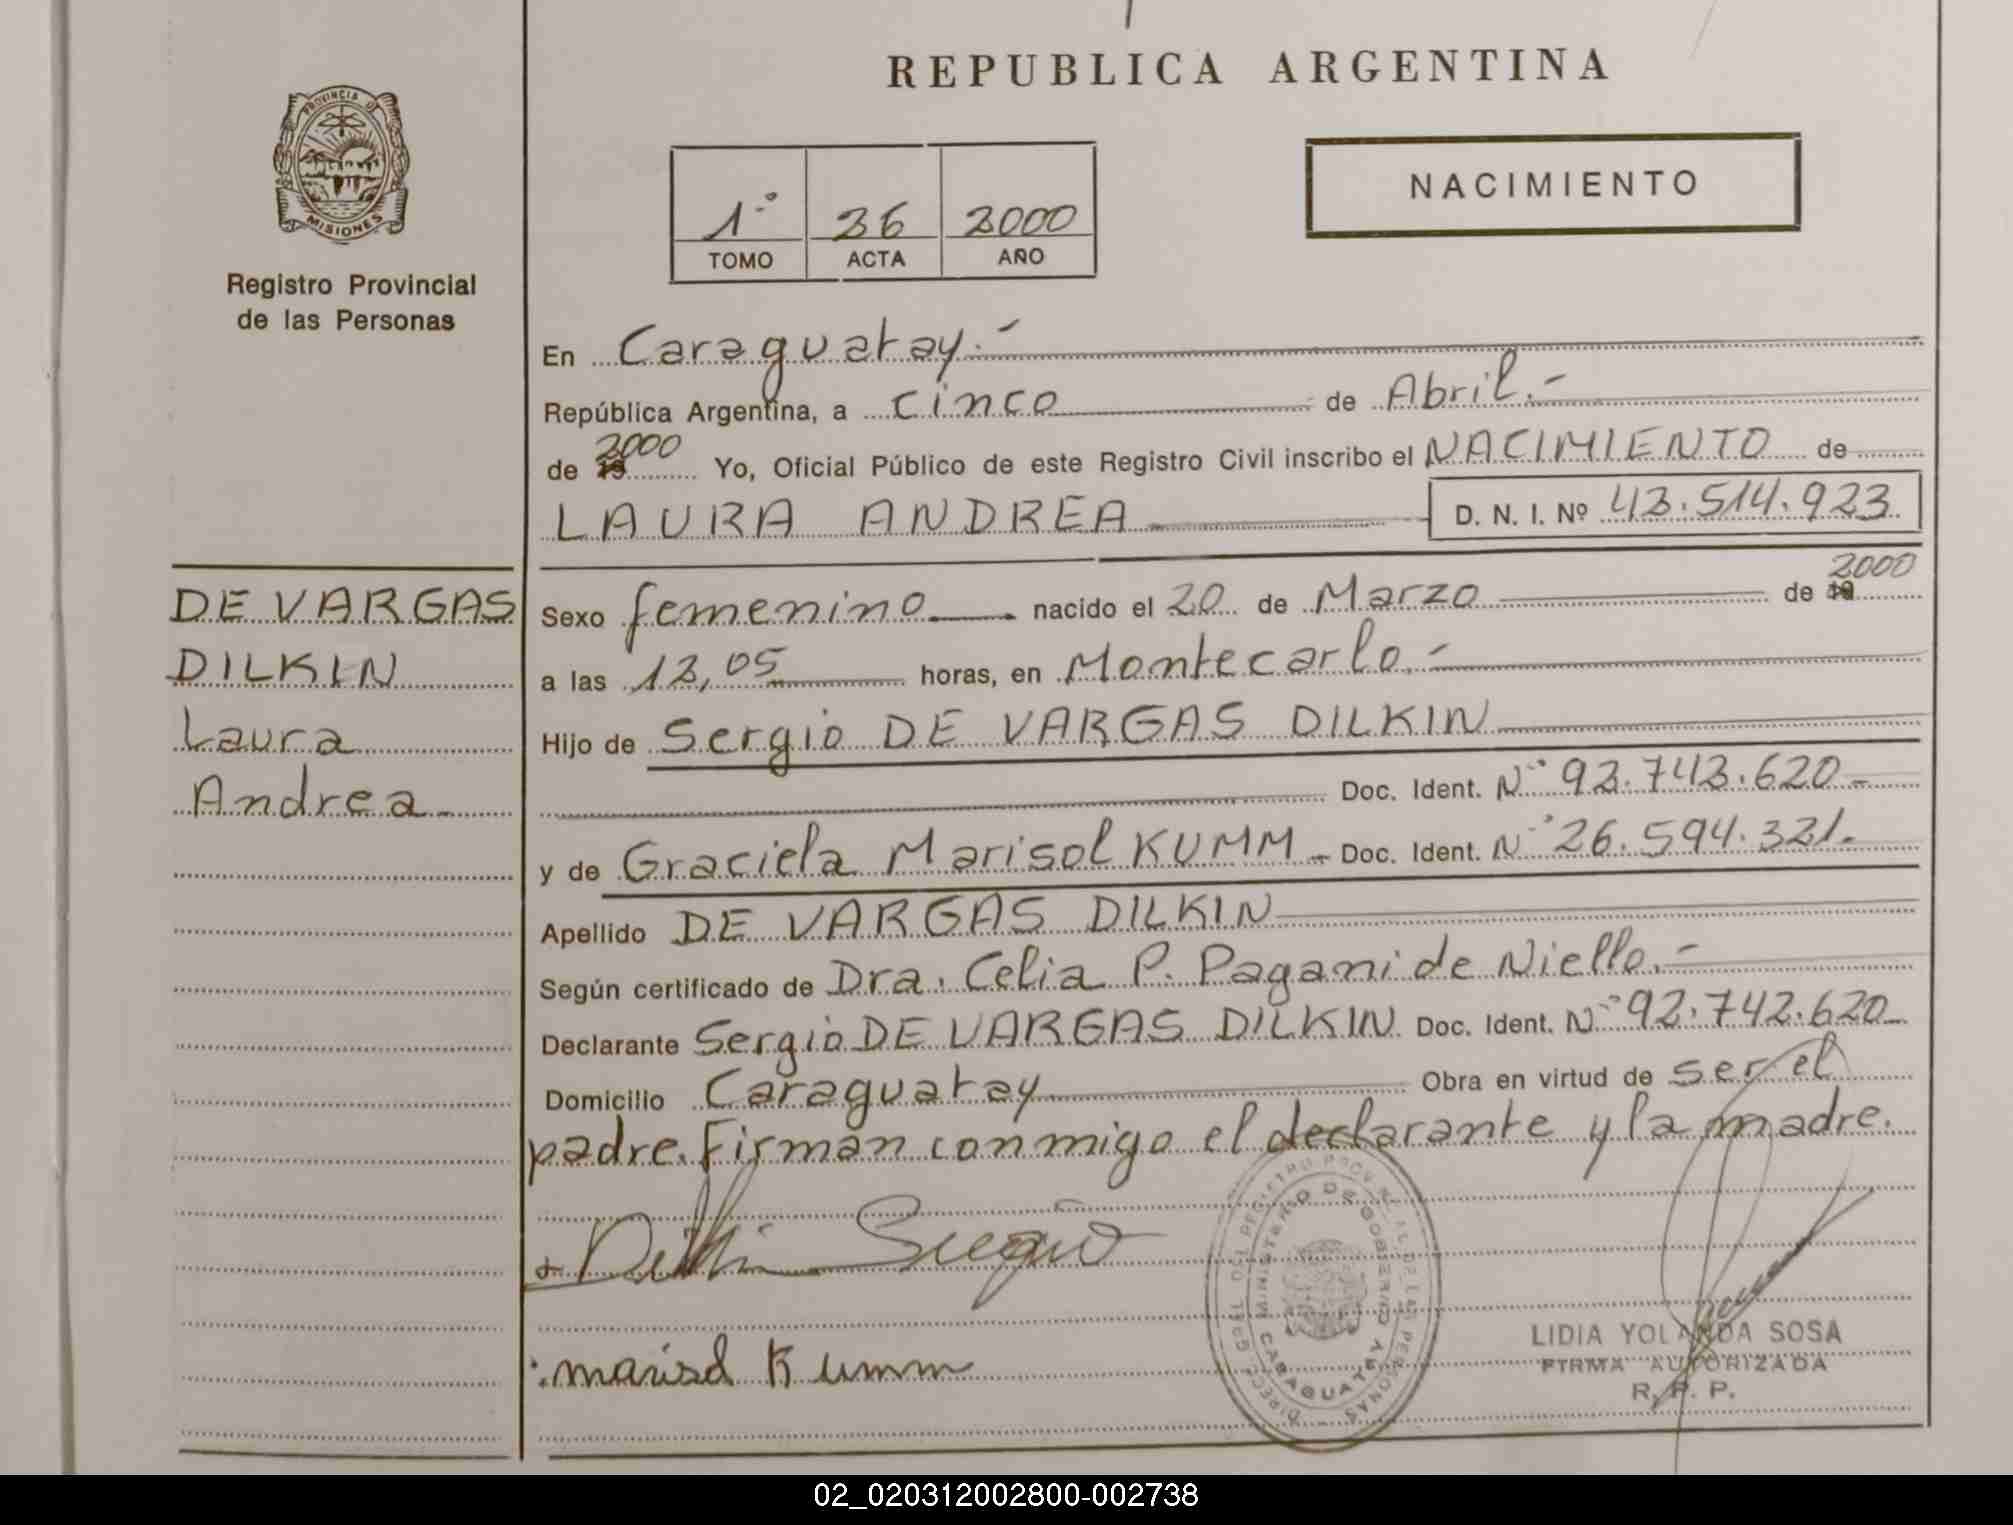 REPUBLICA ARGENTINA
PROVINCIA D
MISIONES
Registro Provincial
de las Personas
1º 36 2000
TOMO ACTA AÑO
NACIMIENTO
En Caraguatay.-
República Argentina, a cinco de Abril.-
de 19 2000 Yo, Oficial Público de este Registro Civil inscribo el NACIMIENTO de
LAURA ANDREA D. N. I. Nº 42.514.923
DE VARGAS
DILKIN
Laura
Andrea.
Sexo femenino nacido el 20 de Marzo de 19 2000
a las 12,05 horas, en Montecarlo.-
Hijo de Sergio DE VARGAS DILKIN
Doc. Ident. Nº 92.742.620-
y de Graciela Marisol KUMM - Doc. Ident. Nº 26.594.321.-
Apellido DE VARGAS DILKIN
Según certificado de Dra. Celia P. Pagani de Niello.-
Declarante Sergio DE VARGAS DILKIN Doc. Ident. Nº 92.742.620
Domicilio Caraguatay Obra en virtud de ser el
padre. Firman conmigo el declarante y la madre.
Dilkin Sergio
marisol Kumm
MINISTERIO DE GOBIERNO
CARAGUATEY
LIDIA YOLANDA SOSA
FIRMA AUTORIZADA
R. P. P.
02_020312002800-002738